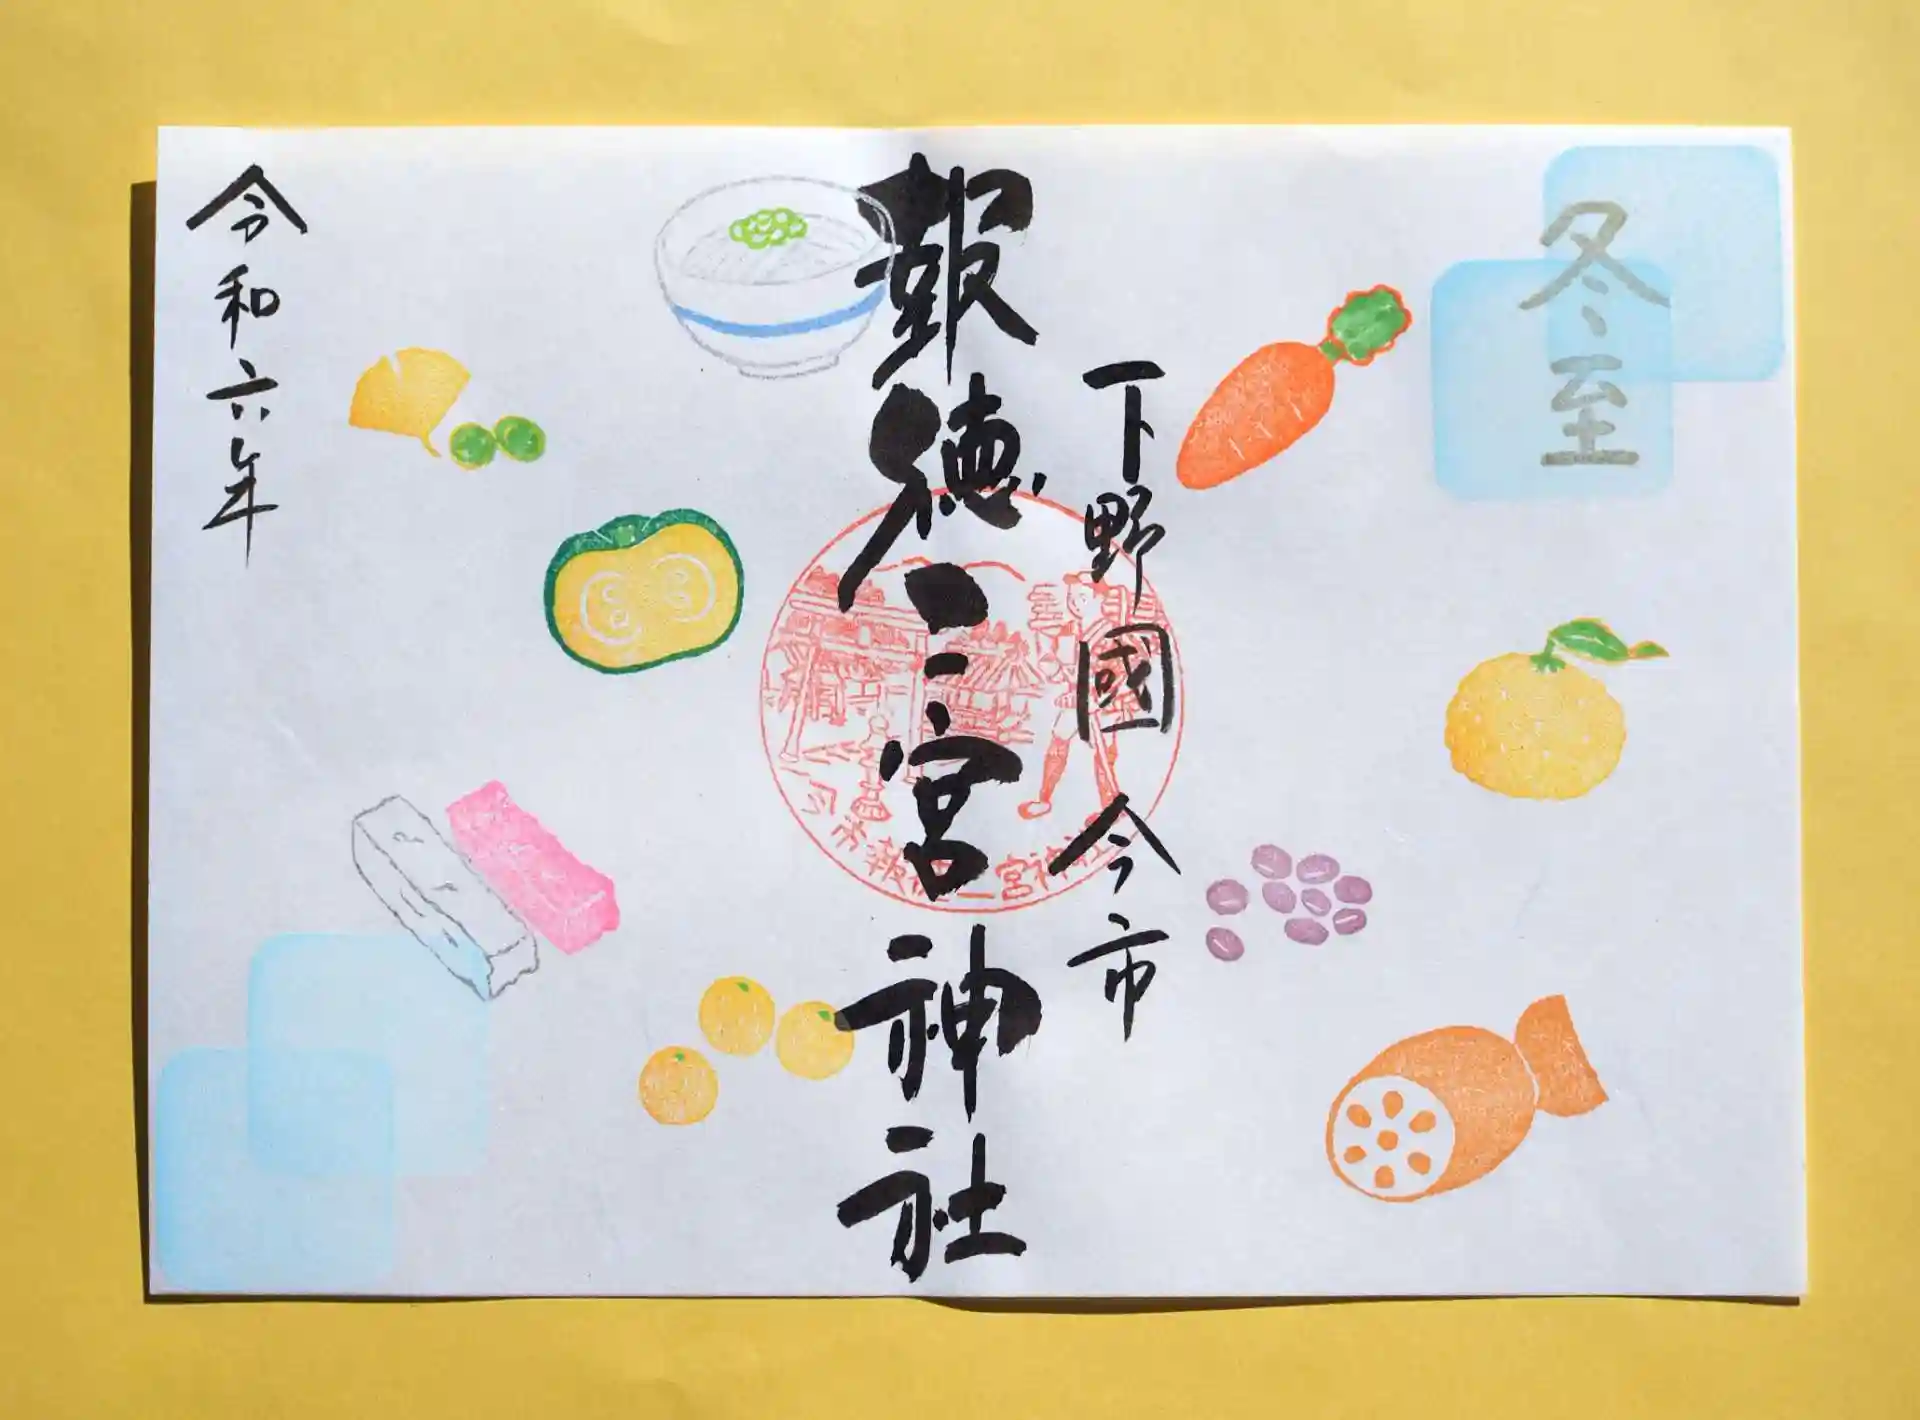 冬至
下野國 今市
報徳二宮神社
今市報徳二宮神社
令和六年